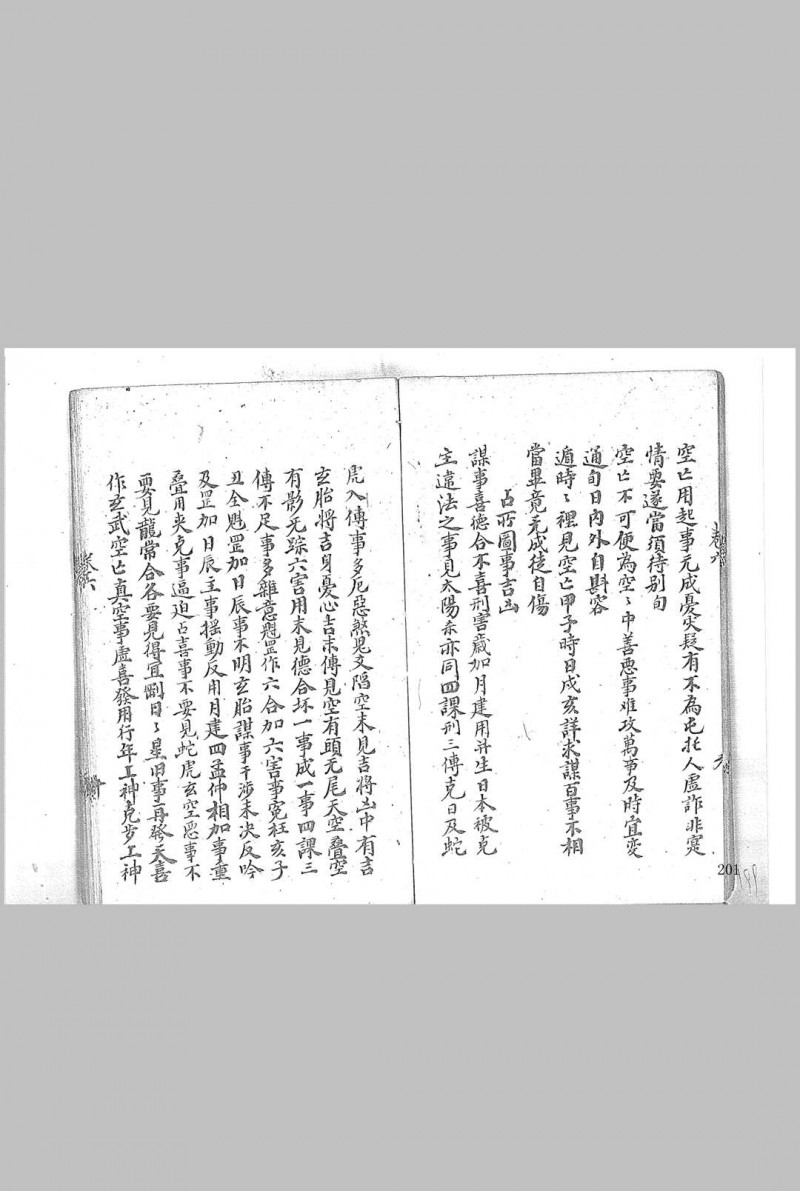 卷六
六
空亡用起事无成憂灾疑有不為屯托人虛詐非寔
情要遂當須待别旬
空亡不可便為空〻中善悪事难攻萬事及時宜变
通旬日内外自斟容
遁時〻裡見空亡甲子時日戍亥詳求謀百事不相
當畢竟无成徒自傷
占所圖事吉凶
謀事喜德合不喜刑害歳加月建用并生日本被克
主違法之事見太陽乘亦同四課刑三傳克日及蛇
虎入傳事多厄惡煞鬼支陷空末見吉將凶中有吉
玄胎將吉身憂心吉末傳見空有頭无尾天空叠空
有影无踪六害用末見德合坏一事成一事四課三
傳不足事多雜意魁罡作六合加六害事冤枉亥子
丑全魁罡加日辰事不明玄胎謀事干涉未决反吟
及罡加日辰主事摇動反用月建四孟仲相加事重
叠用夹克事逼迫占喜事不要見蛇虎玄空悪事不
要見龍常合各要見得宜
日〻星旧事再發天喜
作玄武空亡真空事虛喜發用行年上神克岁上神
卷六
201